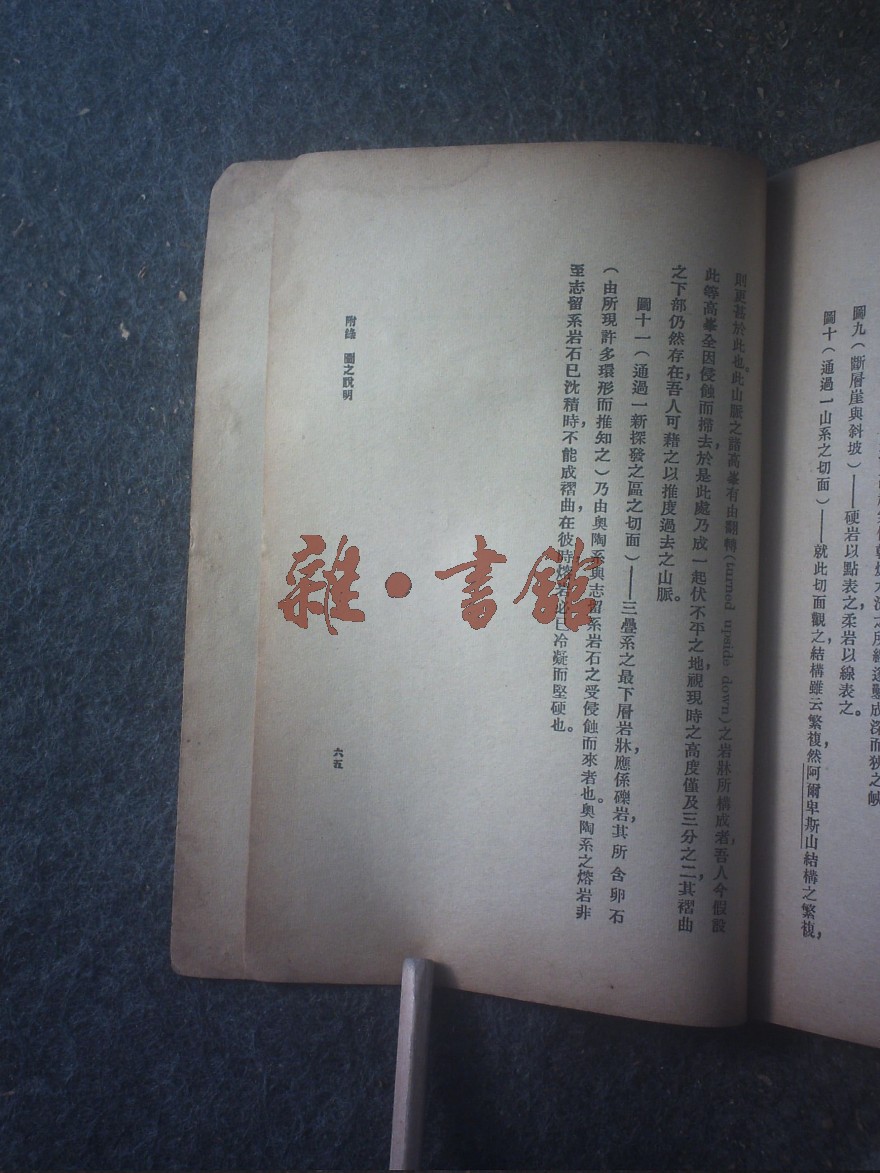 圖九(斷層崖與斜坡)——硬岩以點表之,柔岩以線表之。
圖十(通過一山系之切面)——就此切面觀之,結構雖云繁複,然阿爾卑斯山結構之繁複,
則更甚於此也。此山脈之諸高峯有由翻轉(turned upside down)之岩牀所構成者,吾人今假設
此等高峯全因侵蝕而掃去,於是此處乃成一起伏不平之地,視現時之高度僅及三分之二,其褶曲
之下部仍然存在,吾人可藉之以推度過去之山脈。
圖十一(通過一新探發之區之切面)——三疊系之最下層岩牀,應係礫岩,其所含卵石
(由所現許多環形而推知之)乃由奧陶系與志留系岩石之受侵蝕而來者也。奧陶系之熔岩非
至志留系岩石已沈積時,不能成褶曲,在彼時熔岩必已冷凝而堅硬也。
附錄 圖之說明
六五
雜·書館